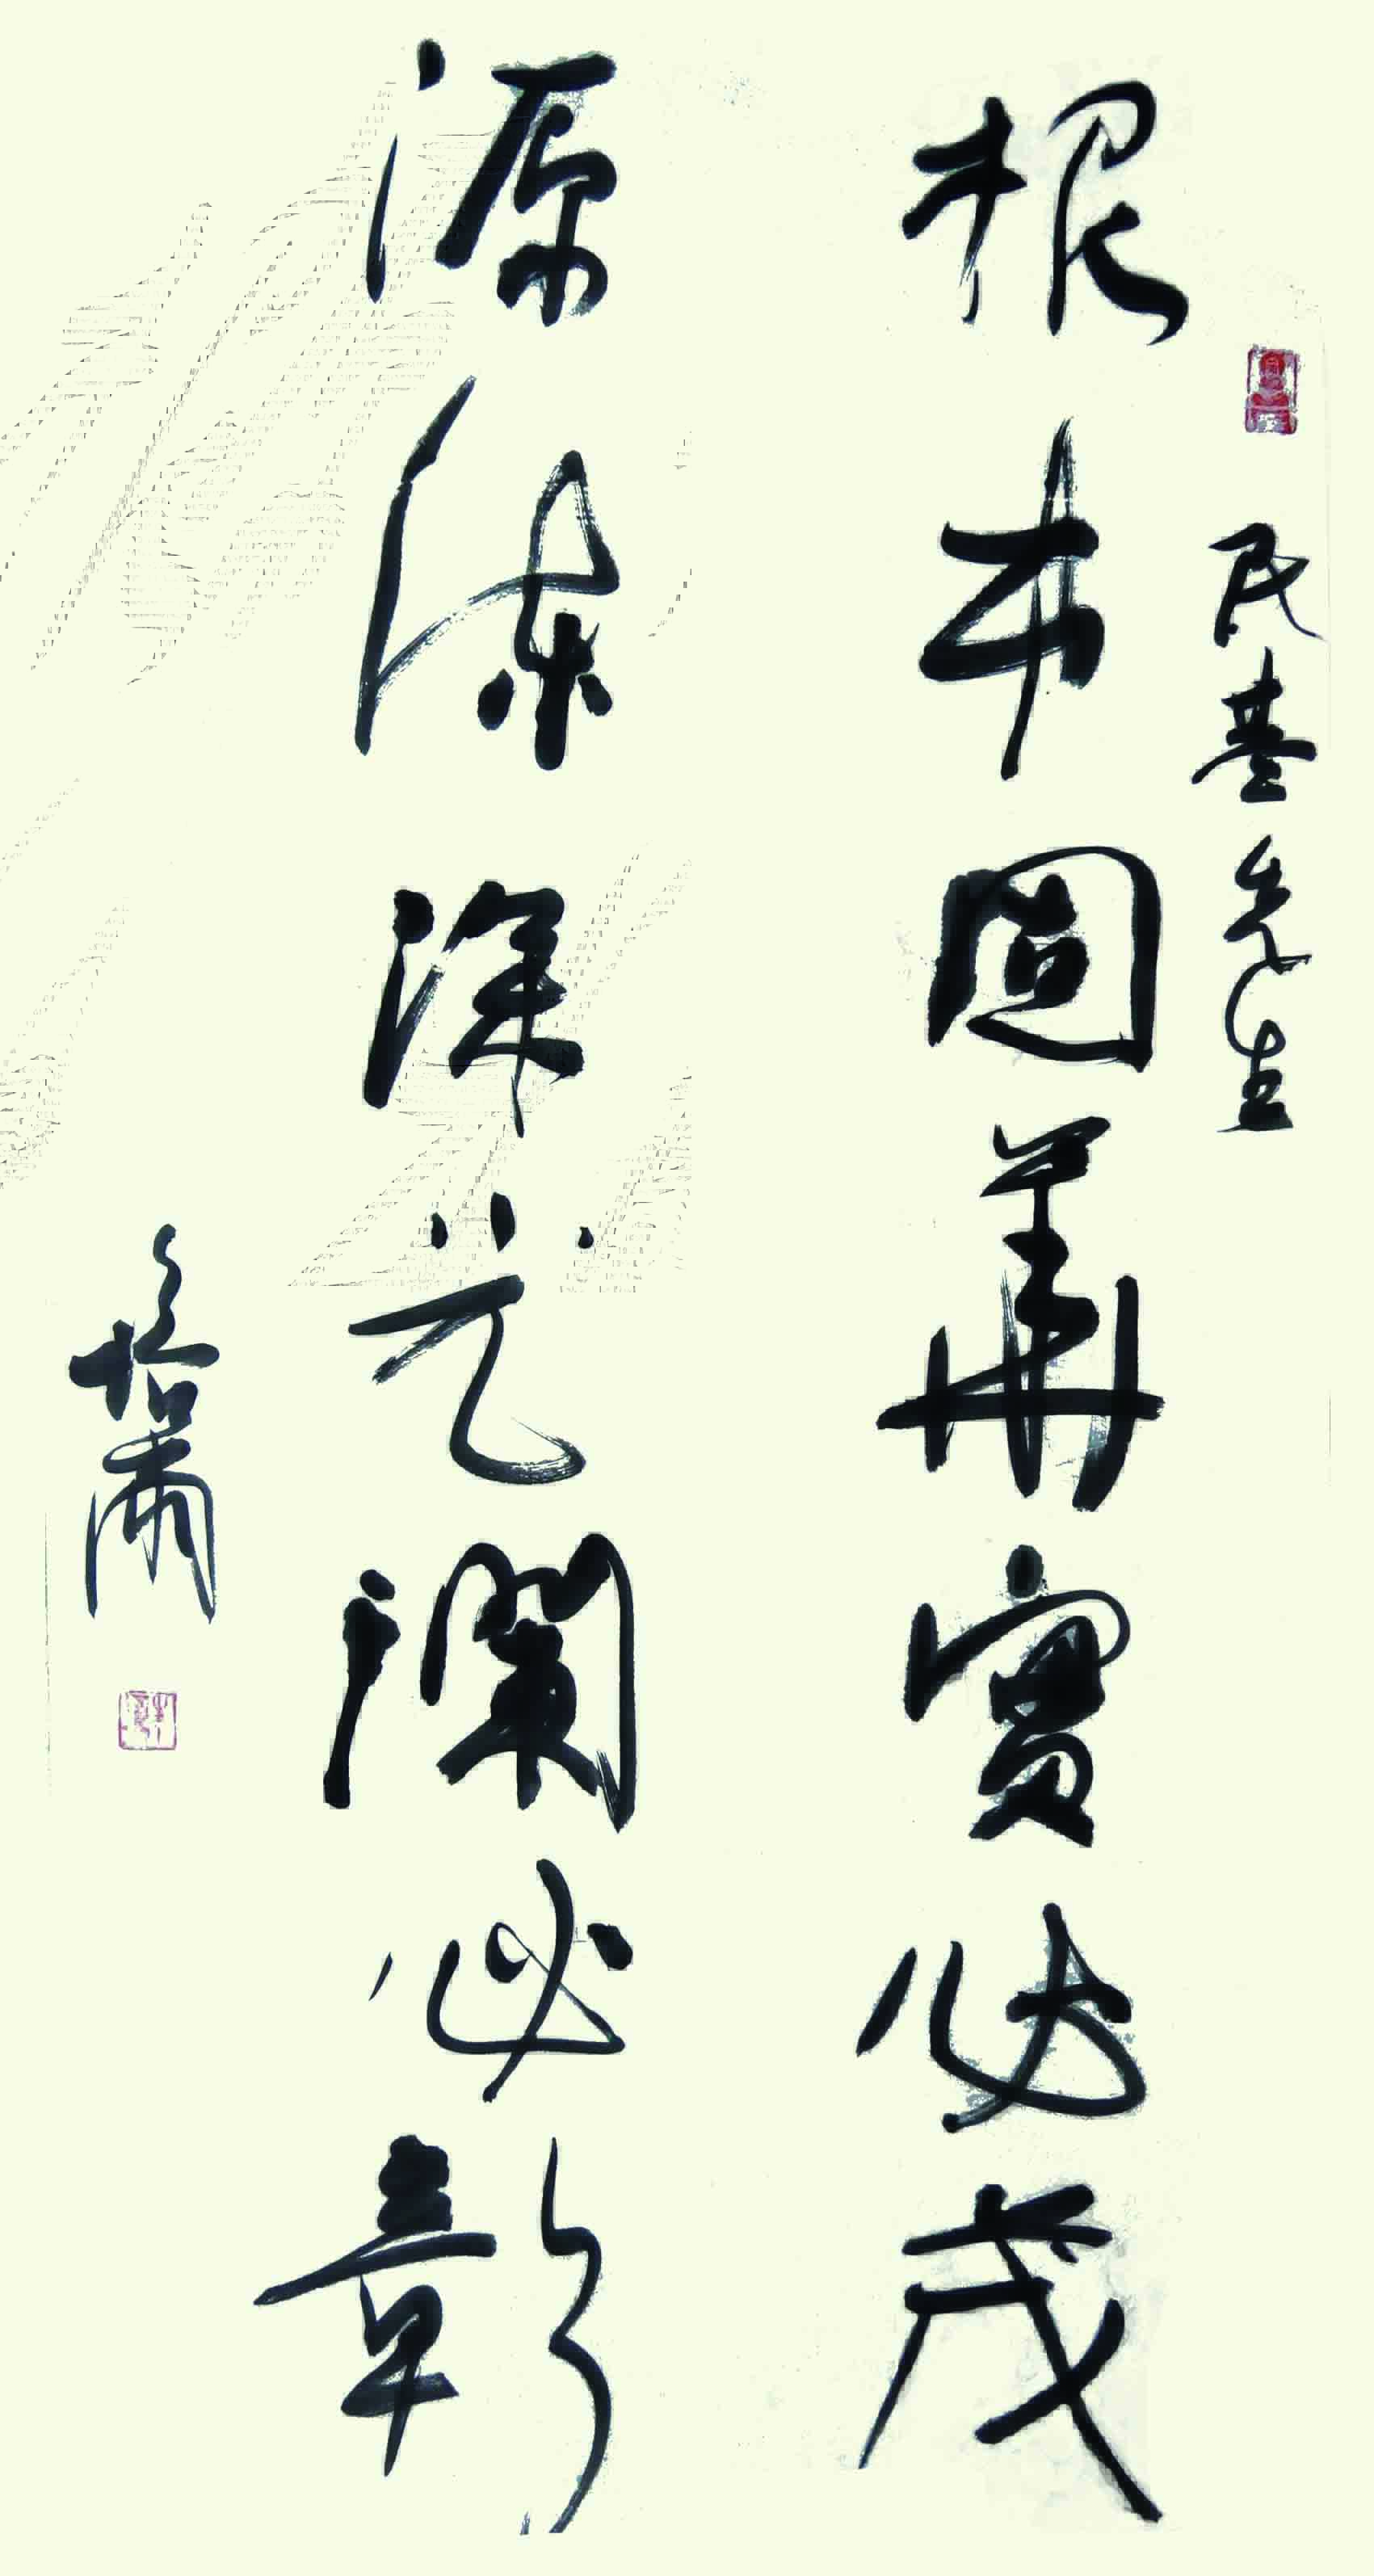 民基先生
根本固華實必茂
源流深光瀾必彰